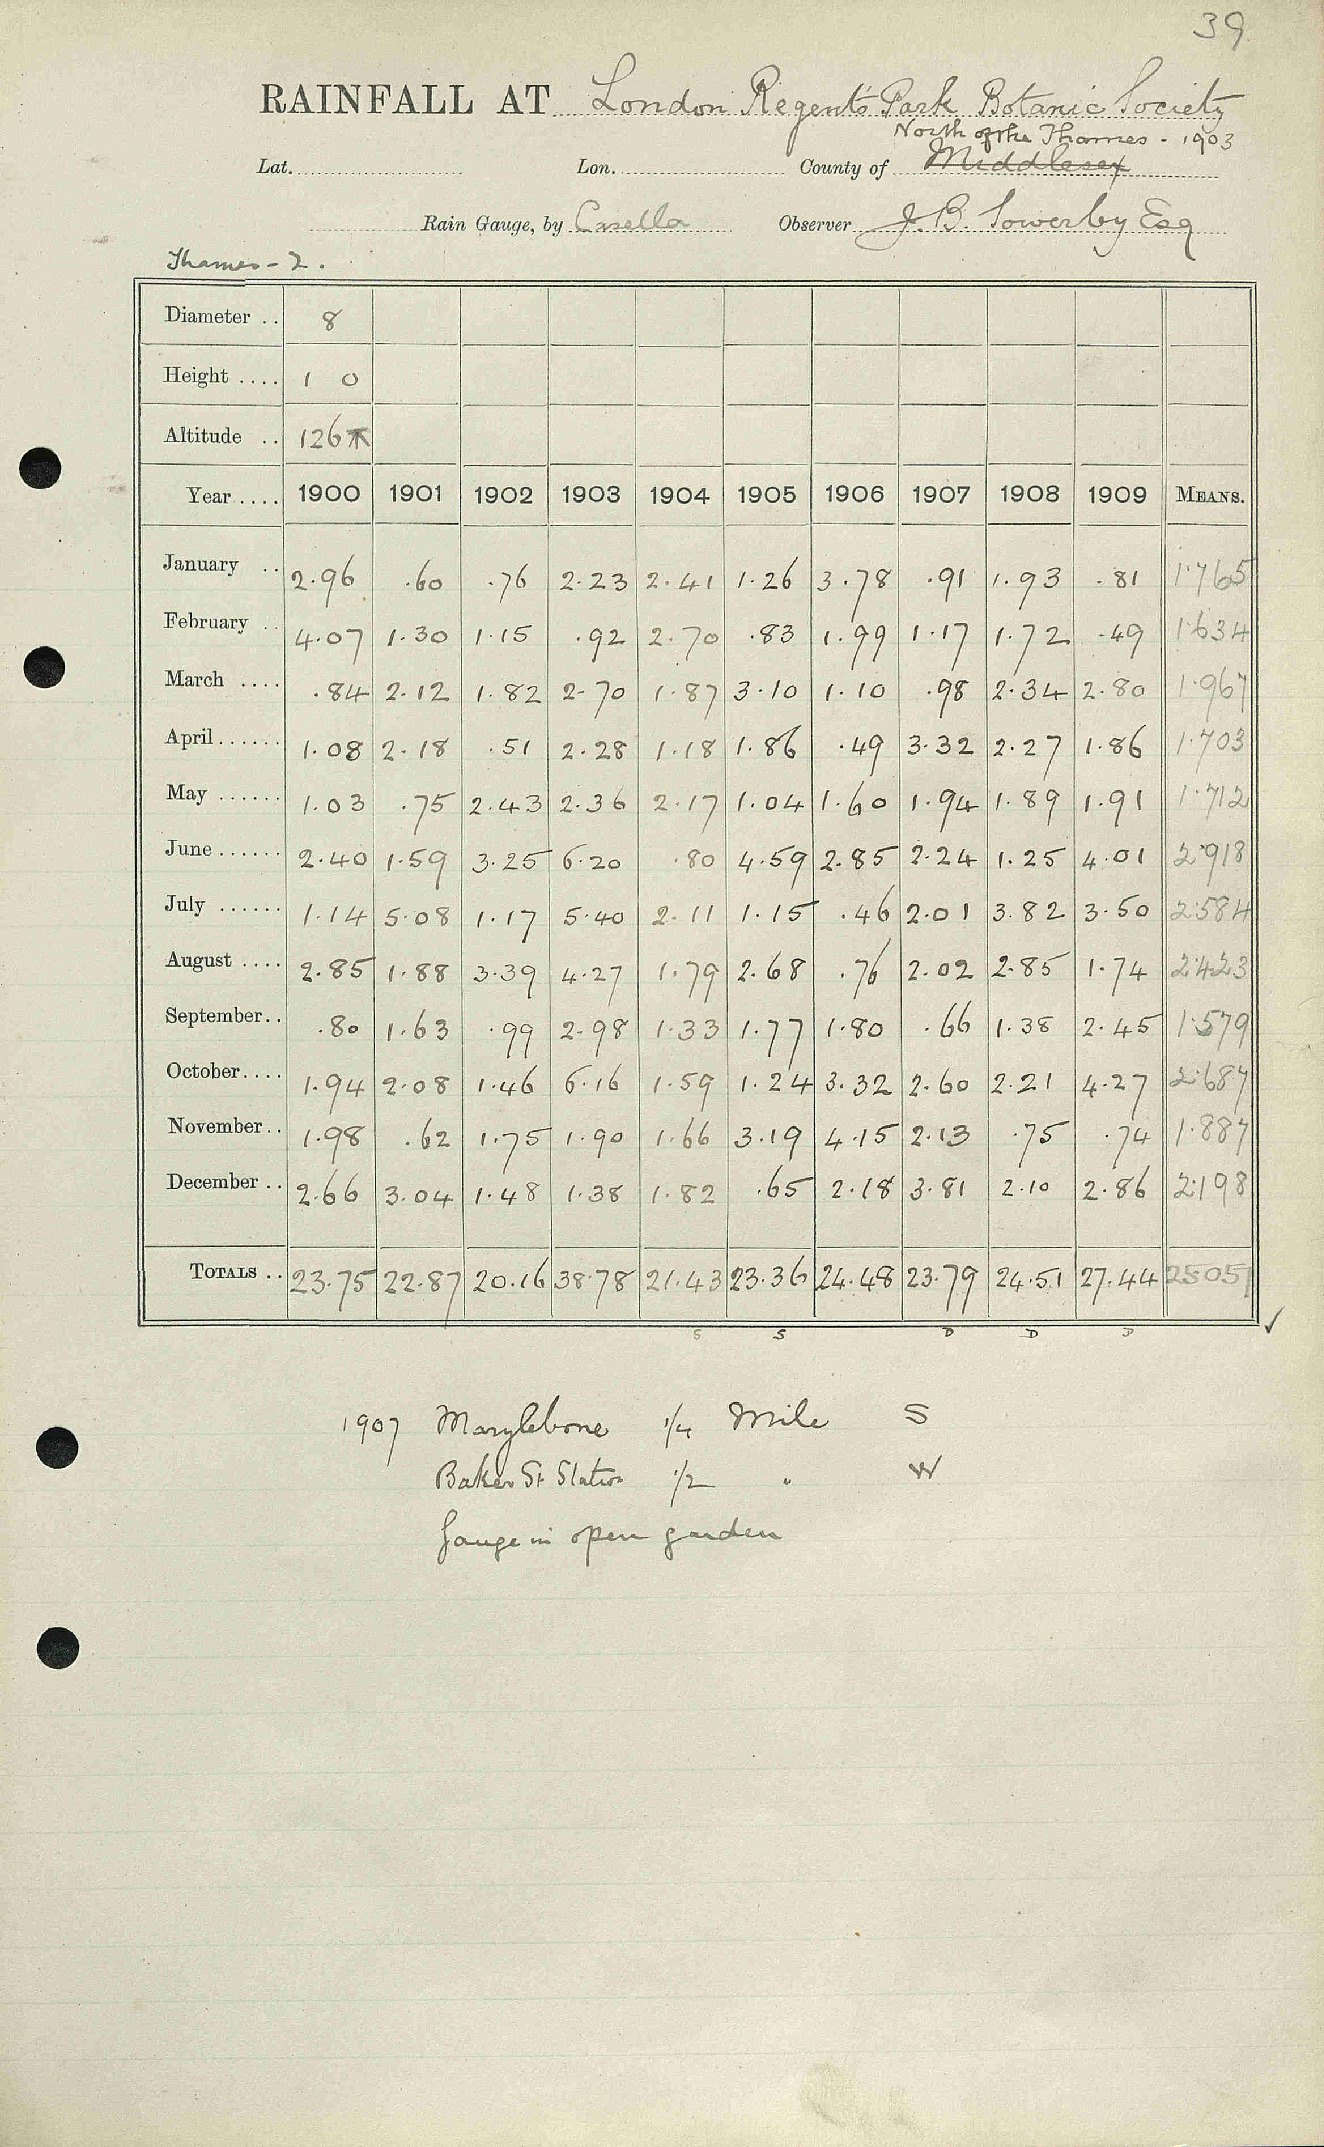 39
RAINFALL AT London Regent's Park Botanic Society
North of the Thames - 1903
Lat. Lon. County of Middlesex
Rain Gauge, by Casella Observer J. B. Sowerby Esq
Thames - 2.
Diameter .. 8
Height .... 1 0
Altitude .. 126
Year .... 1900 1901 1902 1903 1904 1905 1906 1907 1908 1909 MEANS.
January .. 2.96 .60 .76 2.23 2.41 1.26 3.78 .91 1.93 .81 1.765
February .. 4.07 1.30 1.15 .92 2.70 .83 1.99 1.17 1.72 .49 1.634
March .... .84 2.12 1.82 2.70 1.87 3.10 1.10 .98 2.34 2.80 1.967
April ...... 1.08 2.18 .51 2.28 1.18 1.86 .49 3.32 2.27 1.86 1.703
May ...... 1.03 .75 2.43 2.36 2.17 1.04 1.60 1.94 1.89 1.91 1.712
June ...... 2.40 1.59 3.25 6.20 .80 4.59 2.85 2.24 1.25 4.01 2.918
July ...... 1.14 5.08 1.17 5.40 2.11 1.15 .46 2.01 3.82 3.50 2.584
August .... 2.85 1.88 3.39 4.27 1.79 2.68 .76 2.02 2.85 1.74 2.423
September.. .80 1.63 .99 2.98 1.33 1.77 1.80 .66 1.38 2.45 1.579
October.... 1.94 2.08 1.46 6.16 1.59 1.24 3.32 2.60 2.21 4.27 2.687
November.. 1.98 .62 1.75 1.90 1.66 3.19 4.15 2.13 .75 .74 1.887
December .. 2.66 3.04 1.48 1.38 1.82 .65 2.18 3.81 2.10 2.86 2.198
TOTALS .. 23.75 22.87 20.16 38.78 21.43 23.36 24.48 23.79 24.51 27.44 25.051
S S D D D ✓
1907 Marylebone 1/4 Mile S
Baker St Station 1/2 " W
Gauge in open garden